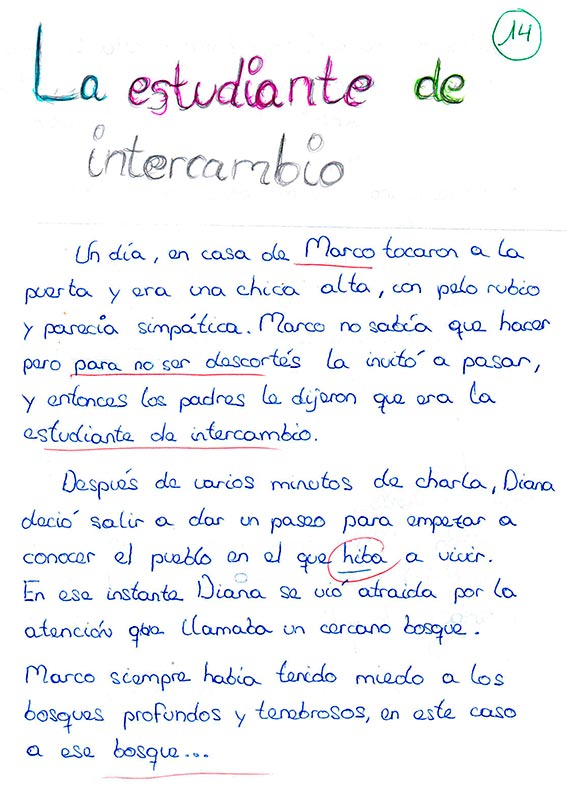 14
La estudiante de
intercambio
Un día, en casa de Marco tocaron a la
puerta y era una chica alta, con pelo rubio
y parecía simpática. Marco no sabía que hacer
pero para no ser descortés la invitó a pasar,
y entonces los padres le dijeron que era la
estudiante de intercambio.
Después de varios minutos de charla, Diana
deció salir a dar un paseo para empezar a
conocer el pueblo en el que hiba a vivir.
En ese instante Diana se vió atraida por la
atención que llamaba un cercano bosque.
Marco siempre había tenido miedo a los
bosques profundos y tenebrosos, en este caso
a ese bosque...